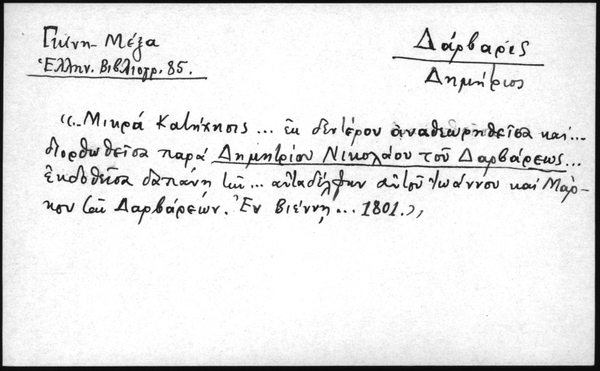 Γκίνη-Μέξα
Ἑλλην. Βιβλιογρ. 85.
Δάρβαρις
Δημήτριος
«..Μικρά Κατήχησις... ἐκ δευτέρου ἀναθεωρηθεῖσα καί...
διορθωθεῖσα παρά Δημητρίου Νικολάου τοῦ Δαρβάρεως...
ἐκδοθεῖσα δαπάνῃ τῶν... αὐταδέλφων αὐτοῦ Ἰωάννου καί Μάρ-
κου τῶν Δαρβάρεων. Ἐν Βιέννῃ... 1801.»,